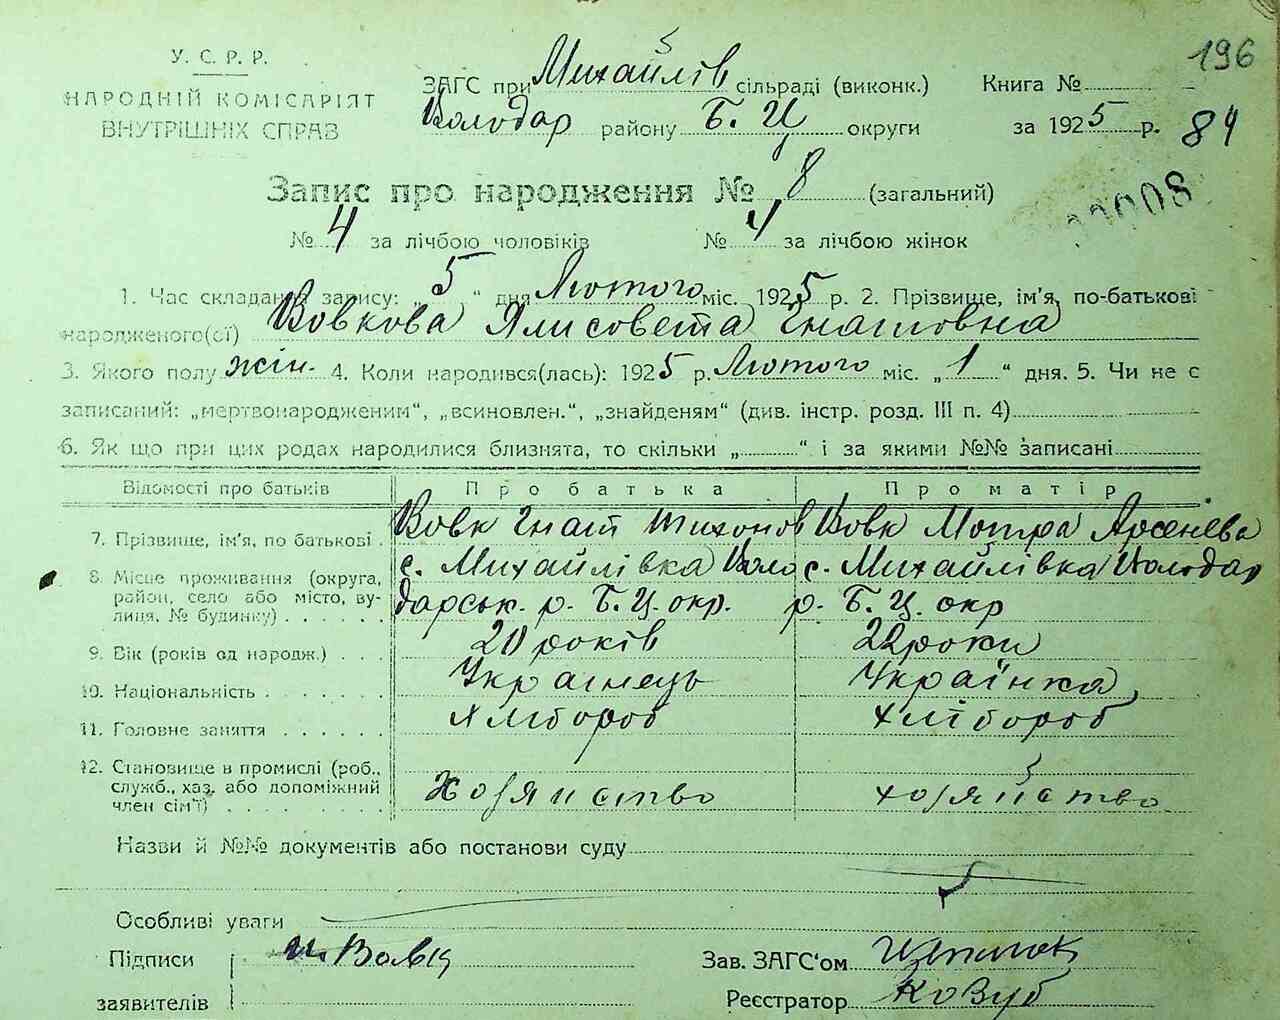 196
У. С. Р. Р.
НАРОДНІЙ КОМІСАРІЯТ
ВНУТРІШНІХ СПРАВ
ЗАГС при Михайлів сільраді (виконк.) Книга №
Володар району Б. Ц округи за 1925 р. 84
Запис про народження № 8 (загальний)
№ 4 за лічбою чоловіків № 4 за лічбою жінок
1. Час складання запису: „ 5 “ дня Лютого міс. 1925 р. 2. Прізвище, ім'я, по-батькові
народженого(ої) Вовкова Ялисовета Гнатовна
3. Якого полу жін. 4. Коли народився(лась): 1925 р. Лютого міс. „ 1 “ дня. 5. Чи не є
записаний: „мертвонародженим“, „всиновлен.“, „знайденям“ (див. інстр. розд. III п. 4)
6. Як що при цих родах народилися близнята, то скільки „ “ і за якими №№ записані
Відомості про батьків Про батька Про матір
7. Прізвище, ім'я, по батькові . Вовк Гнат Тихонов Вовк Мотра Арсенєва
8. Місце проживання (округа, район, село або місто, вулиця, № будинку) . . . . . .
с. Михайлівка Володарськ. р. Б. Ц. окр. с. Михайлівка Володар р. Б. Ц. окр
9. Вік (років од народж.) . . . 20 років 22 роки
10. Національність . . . . . . . Українець Українка
11. Головне заняття . . . . . . Хлібороб Хлібороб
12. Становище в промислі (роб., служб., хаз. або допоміжний член сім'ї) . . . . . . . .
Хозяйство хозяйство
Назви й №№ документів або постанови суду
Особливі уваги
Підписи Вовк Зав. ЗАГС'ом
заявителів Реєстратор Ковзуб